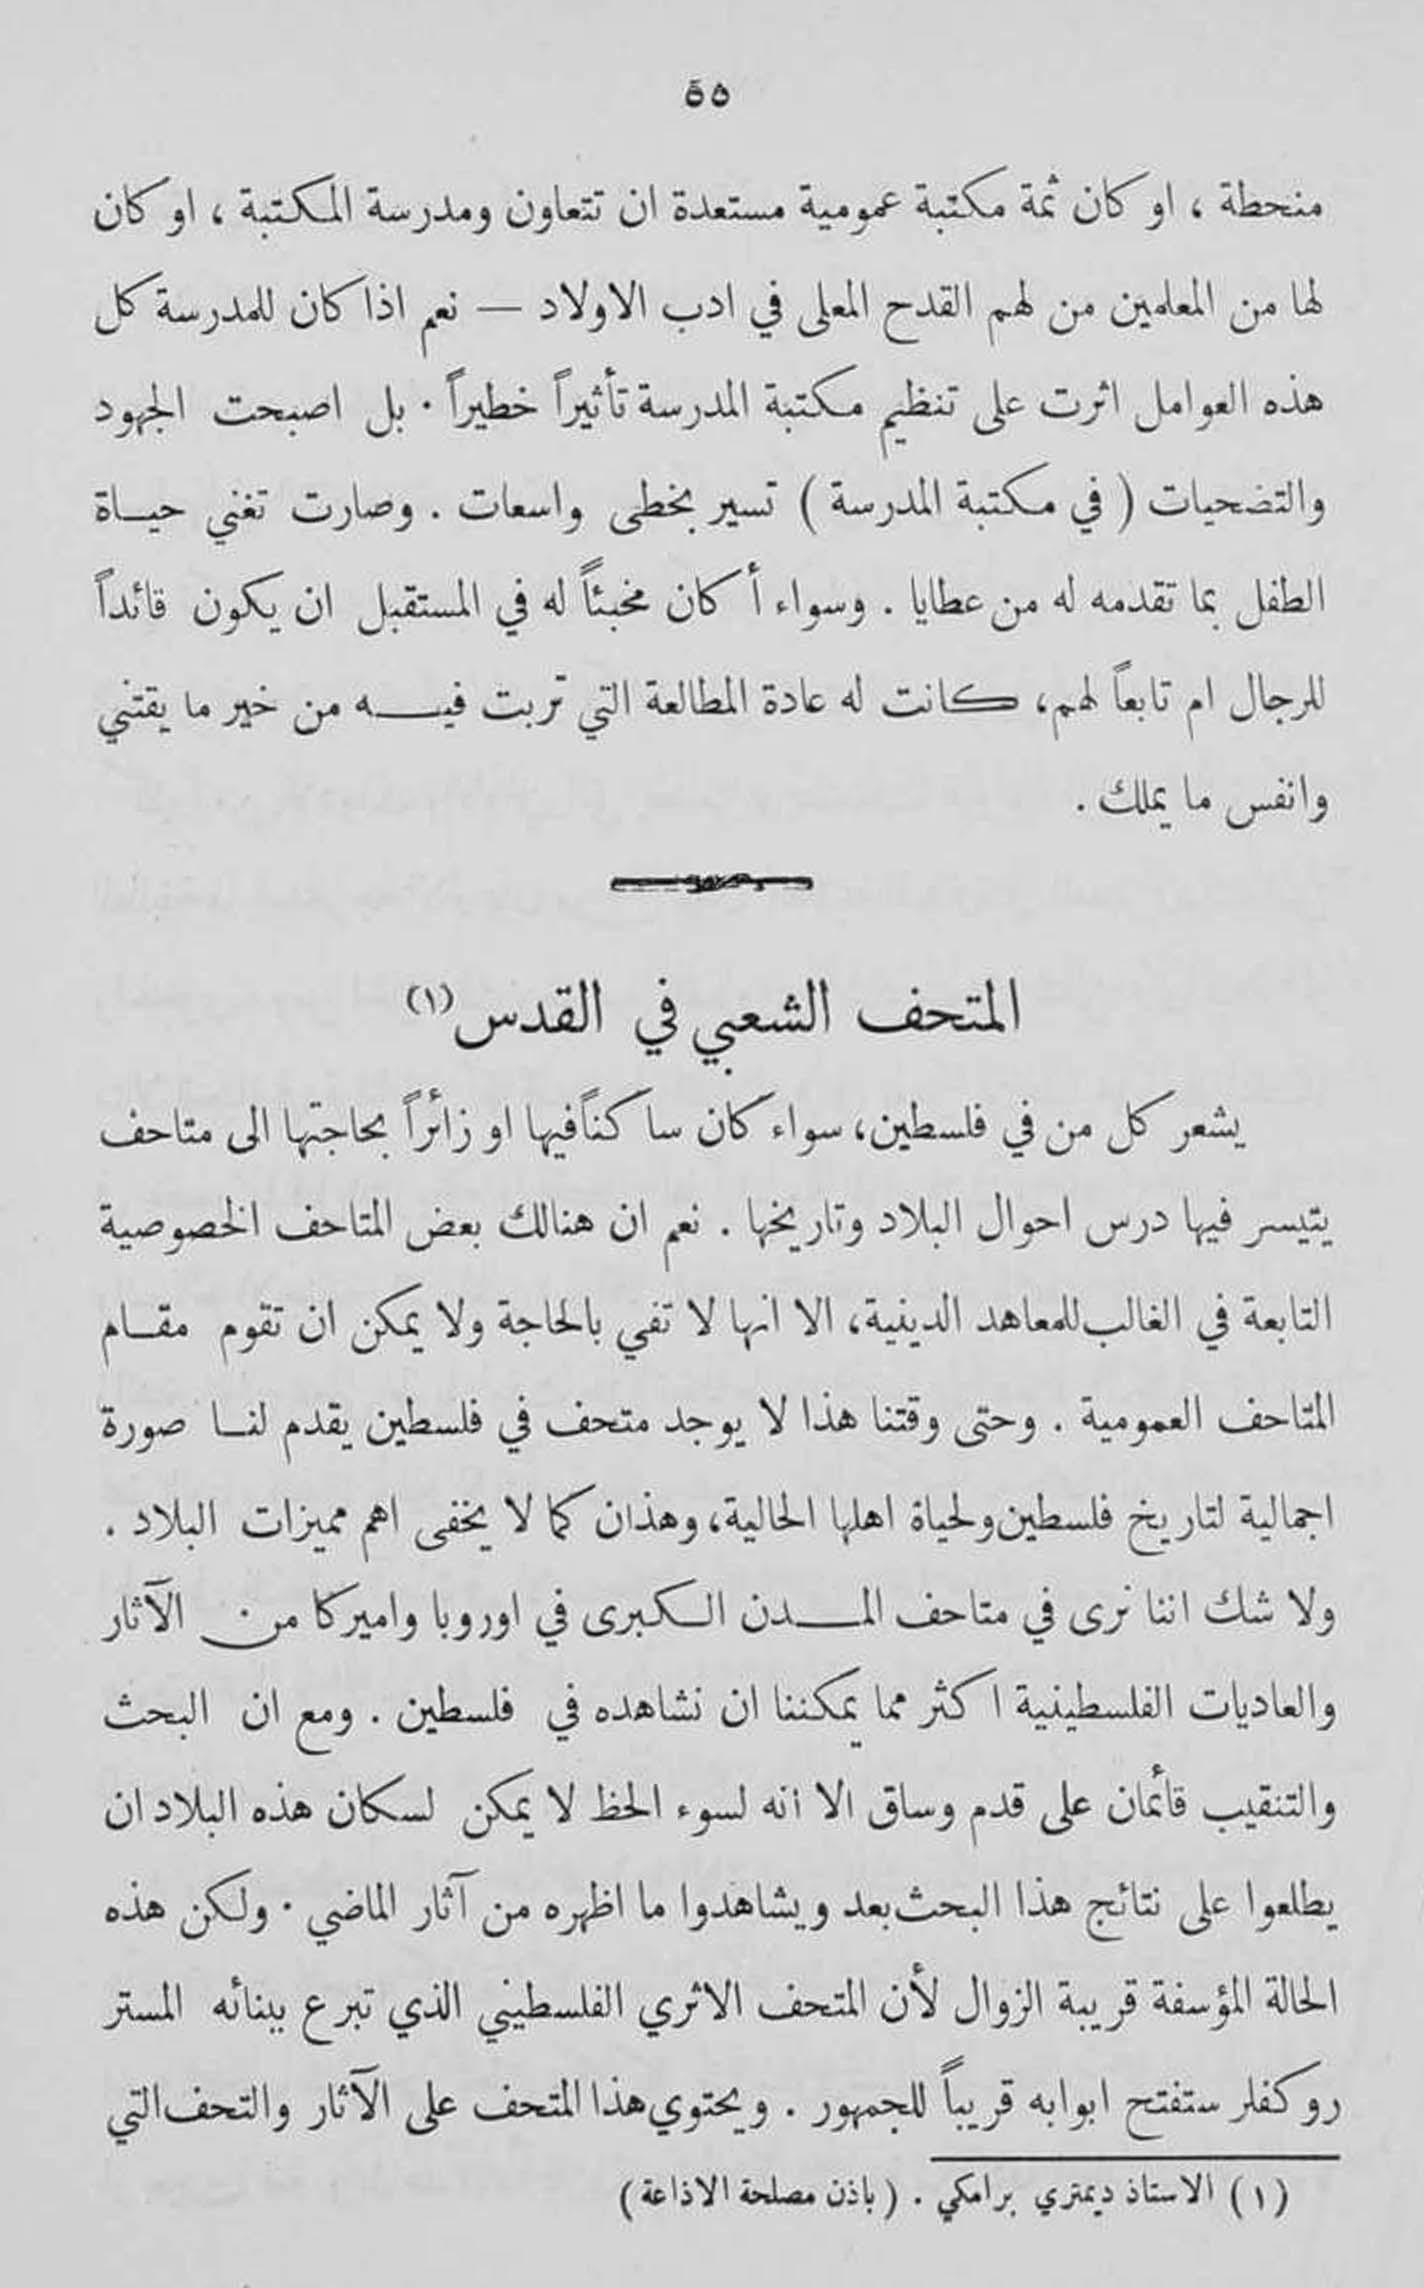 ٥٥
منحطة ، او كان ثمة مكتبة عمومية مستعدة ان تتعاون ومدرسة المكتبة ، او كان
لها من المعلمين من لهم القدح المعلى في ادب الاولاد — نعم اذا كان للمدرسة كل
هذه العوامل اثرت على تنظيم مكتبة المدرسة تأثيراً خطيراً . بل اصبحت الجهود
والتضحيات ( في مكتبة المدرسة ) تسير بخطى واسعات . وصارت تغني حياة
الطفل بما تقدمه له من عطايا . وسواء أ كان مخبئاً له في المستقبل ان يكون قائداً
للرجال ام تابعاً لهم، كانت له عادة المطالعة التي تربت فيه من خير ما يقتني
وانفس ما يملك .
المتحف الشعبي في القدس (١)
يشعر كل من في فلسطين، سواء كان ساكناً فيها او زائراً بحاجتها الى متاحف
يتيسر فيها درس احوال البلاد وتاريخها . نعم ان هنالك بعض المتاحف الخصوصية
التابعة في الغالب للمعاهد الدينية، الا انها لا تفي بالحاجة ولا يمكن ان تقوم مقام
المتاحف العمومية . وحتى وقتنا هذا لا يوجد متحف في فلسطين يقدم لنا صورة
اجمالية لتاريخ فلسطين ولحياة اهلها الحالية، وهذان كما لا يخفى اهم مميزات البلاد .
ولا شك اننا نرى في متاحف المدن الكبرى في اوروبا واميركا من الآثار
والعاديات الفلسطينية اكثر مما يمكننا ان نشاهده في فلسطين . ومع ان البحث
والتنقيب قائمان على قدم وساق الا انه لسوء الحظ لا يمكن لسكان هذه البلاد ان
يطلعوا على نتائج هذا البحث بعد ويشاهدوا ما اظهره من آثار الماضي . ولكن هذه
الحالة المؤسفة قريبة الزوال لأن المتحف الاثري الفلسطيني الذي تبرع ببنائه المستر
روكفلر ستفتح ابوابه قريباً للجمهور . ويحتوي هذا المتحف على الآثار والتحف التي
(١) الاستاذ ديمتري برامكي . (باذن مصلحة الاذاعة)